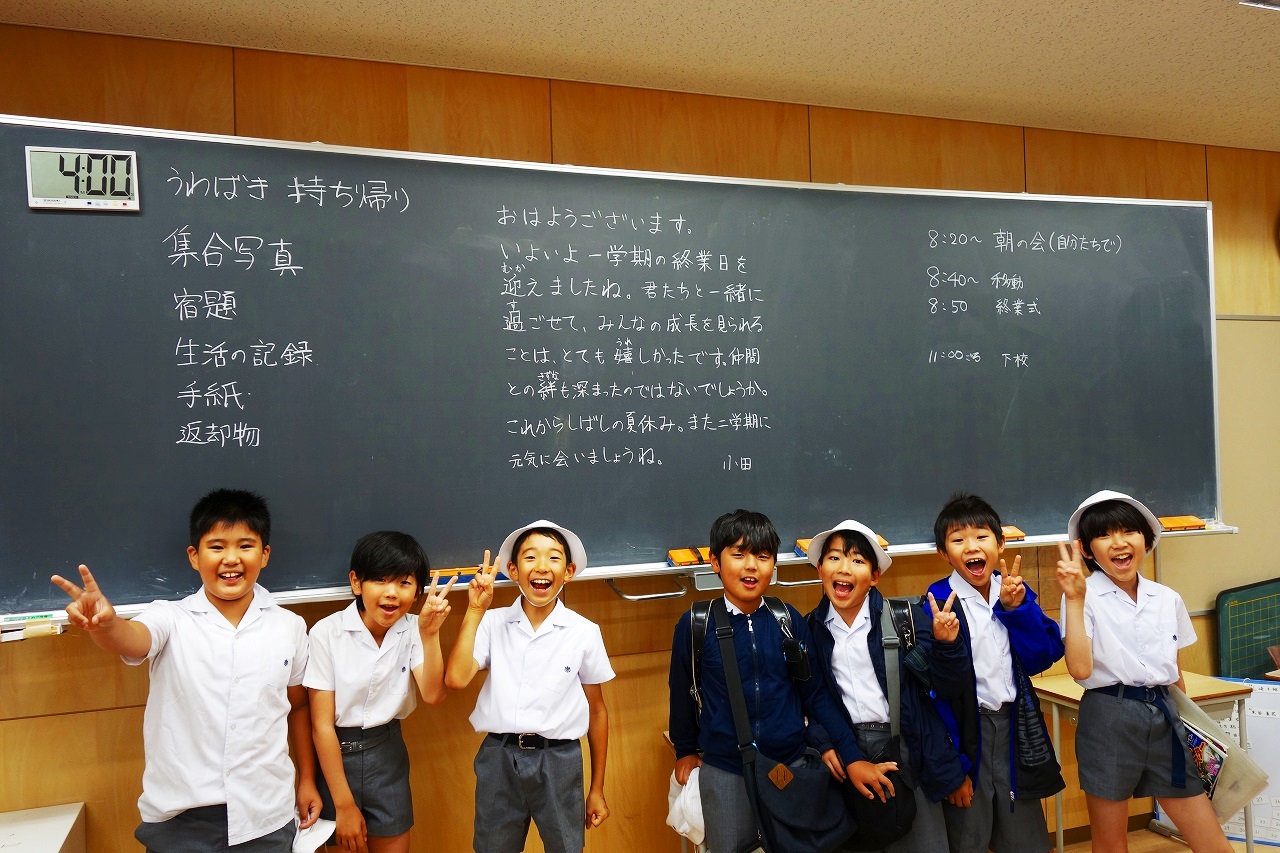 4:00
うわばき 持ち帰り
集合写真
宿題
生活の記録
手紙
返却物
おはようございます。
いよいよ一学期の終業日を
むか
迎えましたね。君たちと一緒に
す
過ごせて、みんなの成長を見られる
うれ
ことは、とても嬉しかったです。仲間
きずな
との絆も深まったのではないでしょうか。
これからしばしの夏休み。また二学期に
元気に会いましょうね。
小田
8:20〜 朝の会(自分たちで)
8:40〜 移動
8:50 終業式
11:00ごろ 下校